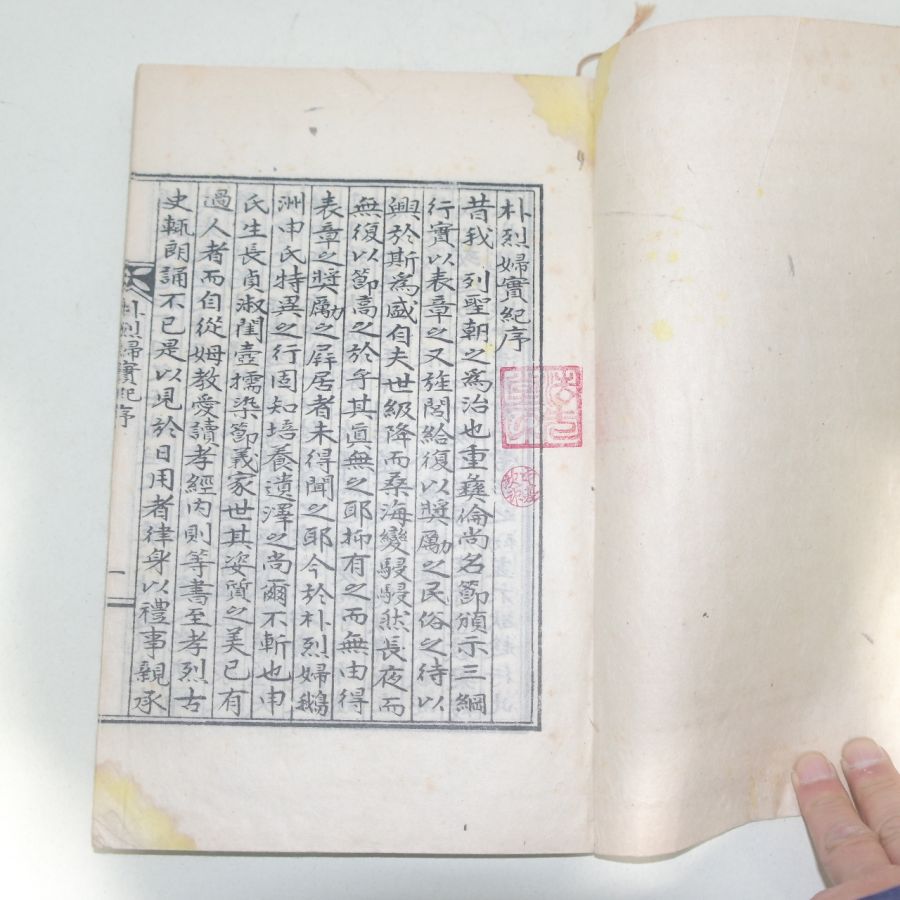 朴烈婦實紀序
昔我 列聖朝之爲治也重彝倫尚名節頒示三綱
行實以表章之又旌閭給復以奬勵之民俗之待以
興於斯爲盛自夫世級降而桑海變駸駸然長夜而
無復以節高之於乎其眞無之耶抑有之而無由得
表章之奬勵之屛居者未得聞之耶今於朴烈婦鵝
洲申氏特異之行固知培養遺澤之尚爾不斬也申
氏生長貞淑閨壼擩染節義家世其姿質之美已有
過人者而自從姆教愛讀孝經內則等書至孝烈古
史輒朗誦不已是以見於日用者律身以禮事親承
朴烈婦實紀序
一